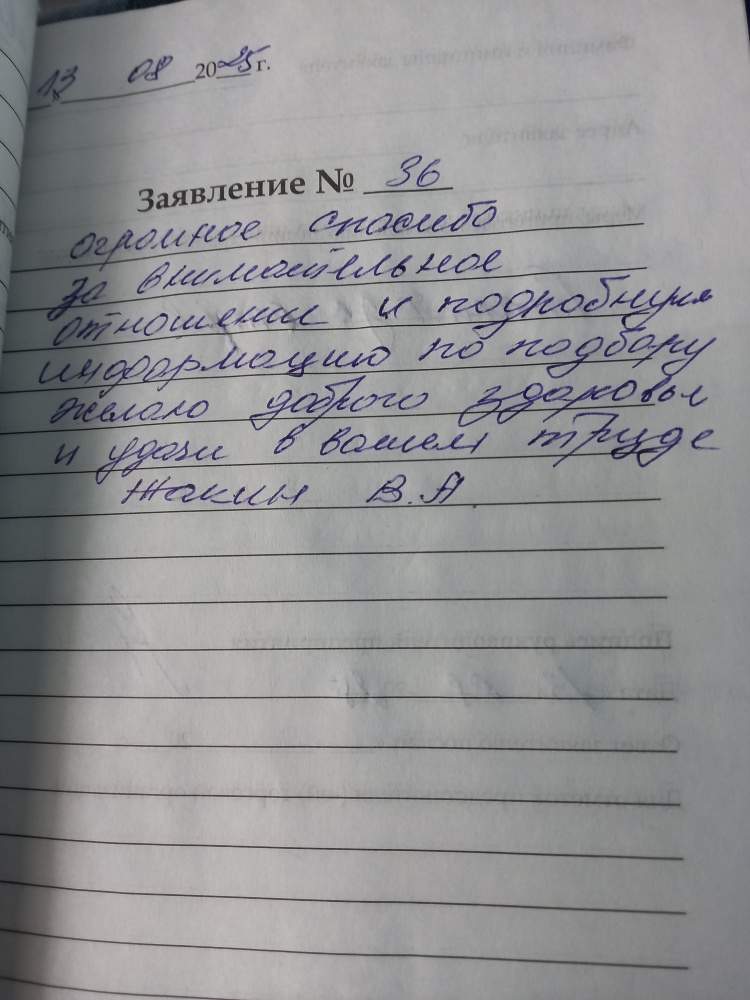 13 08 2025 г.
Заявление № 36
огромное спасибо
за внимательное
отношении и подробную
информацию по подбору
желаю доброго здоровья
и удачи в вашем труде
Жакин В.А